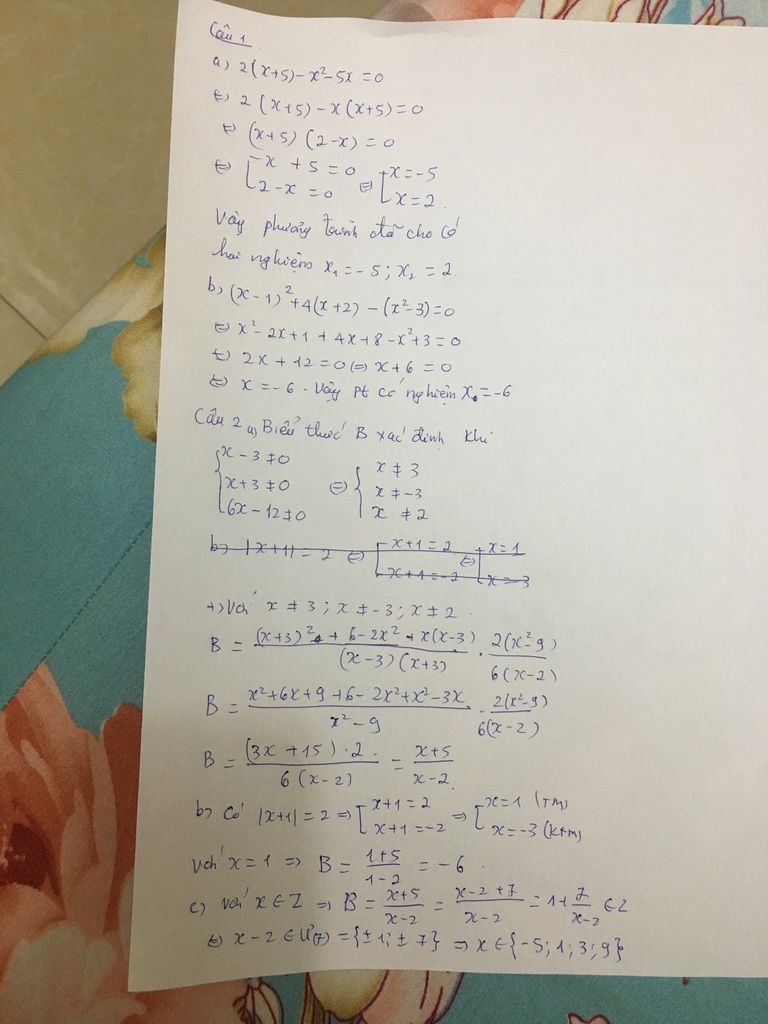 Câu 1
a) 2(x+5) - x² - 5x = 0
⇔ 2(x+5) - x(x+5) = 0
⇔ (x+5)(2-x) = 0
⇔ [x + 5 = 0 ⇔ [x = -5
2 - x = 0 x = 2.
Vậy phương trình đã cho có
hai nghiệm x₁ = -5; x₂ = 2
b, (x-1)² + 4(x+2) - (x²-3) = 0
⇔ x² - 2x + 1 + 4x + 8 - x² + 3 = 0
⇔ 2x + 12 = 0 ⇔ x + 6 = 0
⇔ x = -6. Vậy pt có nghiệm x = -6
Câu 2 a, Biểu thức B xác định khi
{x - 3 ≠ 0 ⇔ {x ≠ 3
x + 3 ≠ 0 x ≠ -3
6x - 12 ≠ 0 x ≠ 2
b, |x+1| = 2 ⇔ [x+1 = 2 ⇔ [x = 1
x+1 = -2 x = -3
+) Với x ≠ 3; x ≠ -3; x ≠ 2
B = ((x+3)² + 6 - 2x² + x(x-3))/((x-3)(x+3)) · (2(x²-9))/(6(x-2))
B = (x²+6x+9+6-2x²+x²-3x)/(x²-9) · (2(x²-9))/(6(x-2))
B = ((3x+15)·2)/(6(x-2)) = (x+5)/(x-2)
b, Có |x+1| = 2 ⇒ [x+1 = 2 ⇒ [x = 1 (TM)
x+1 = -2 x = -3 (KTM)
với x = 1 ⇒ B = (1+5)/(1-2) = -6.
c) với x ∈ Z ⇒ B = (x+5)/(x-2) = (x-2+7)/(x-2) = 1 + 7/(x-2) ∈ Z
⇔ x-2 ∈ Ư(7) = {±1; ±7} ⇒ x ∈ {-5; 1; 3; 9}